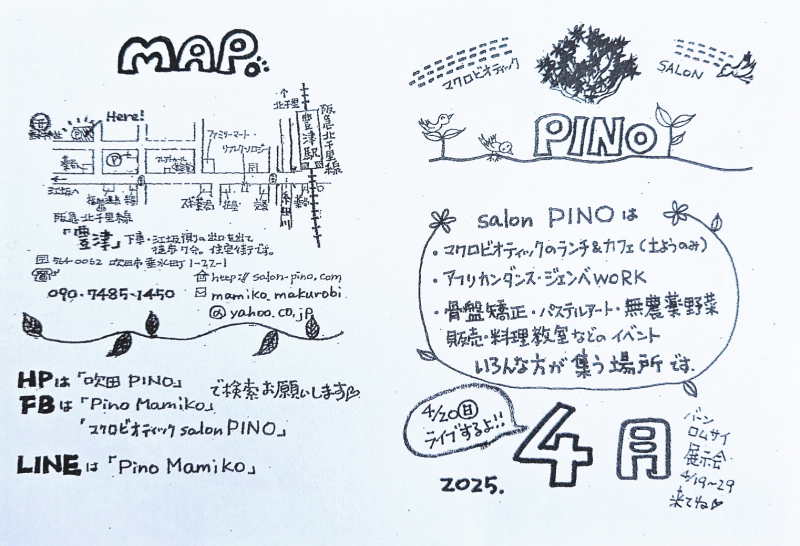 MAP
Here!
↑
北千里
阪急北千里線
豊津駅
ファミリーマート・
リフレクソロジー
江坂へ
交番
糸田川
阪急北千里線
「豊津」下車・江坂側の出口を出て
徒歩7分。住宅街です。
〒564-0062 吹田市垂水町1-27-1
☎
090・7485-1450
http://salon-pino.com
mamiko_makurobi
@yahoo.co.jp
HPは「吹田 PINO」
で検索お願いします
FBは「Pino Mamiko」
「マクロビオティック salon PINO」
LINEは「Pino Mamiko」
マクロビオティック
SALON
PINO
salon PINOは
・マクロビオティックのランチ&カフェ(土ようのみ)
・アフリカンダンス・ジェンベWORK
・骨盤矯正・パステルアート・無農薬野菜
販売・料理教室などのイベント
いろんな方が集う場所です。
4/20(日)
ライブするよ!!
2025.
4月
バーン
ロムサイ
展示会
4/19~29
来てね♡